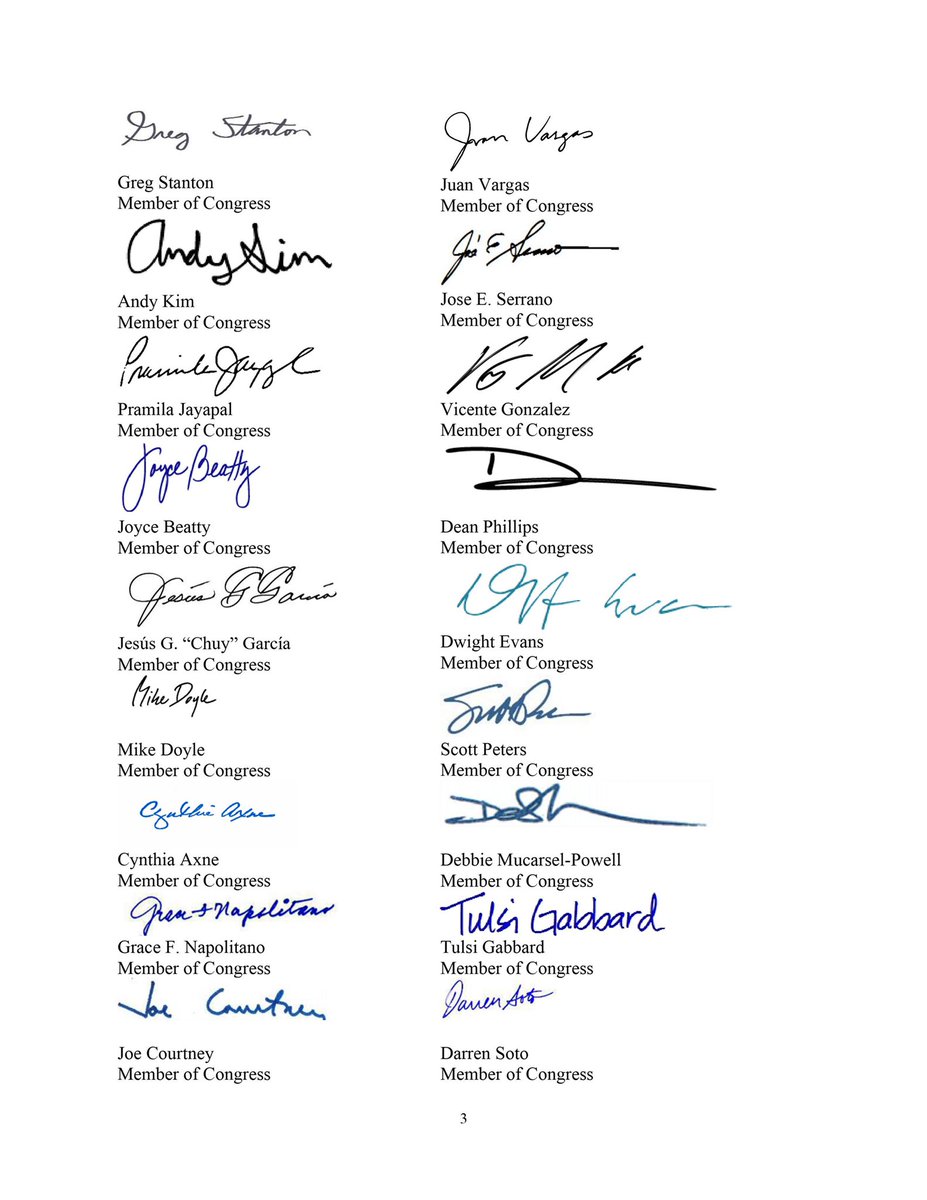 Greg Stanton
Juan Vargas
Greg Stanton
Member of Congress
Juan Vargas
Member of Congress
Andy Kim
José E. Serrano
Andy Kim
Member of Congress
Jose E. Serrano
Member of Congress
Pramila Jayapal
Pramila Jayapal
Member of Congress
Vicente Gonzalez
Member of Congress
Joyce Beatty
Joyce Beatty
Member of Congress
Dean Phillips
Member of Congress
Jesús G García
Jesús G. “Chuy” García
Member of Congress
Dwight Evans
Member of Congress
Mike Doyle
Mike Doyle
Member of Congress
Scott Peters
Member of Congress
Cynthia Axne
Cynthia Axne
Member of Congress
Debbie Mucarsel-Powell
Member of Congress
Grace F Napolitano
Tulsi Gabbard
Grace F. Napolitano
Member of Congress
Tulsi Gabbard
Member of Congress
Joe Courtney
Darren Soto
Joe Courtney
Member of Congress
Darren Soto
Member of Congress
3